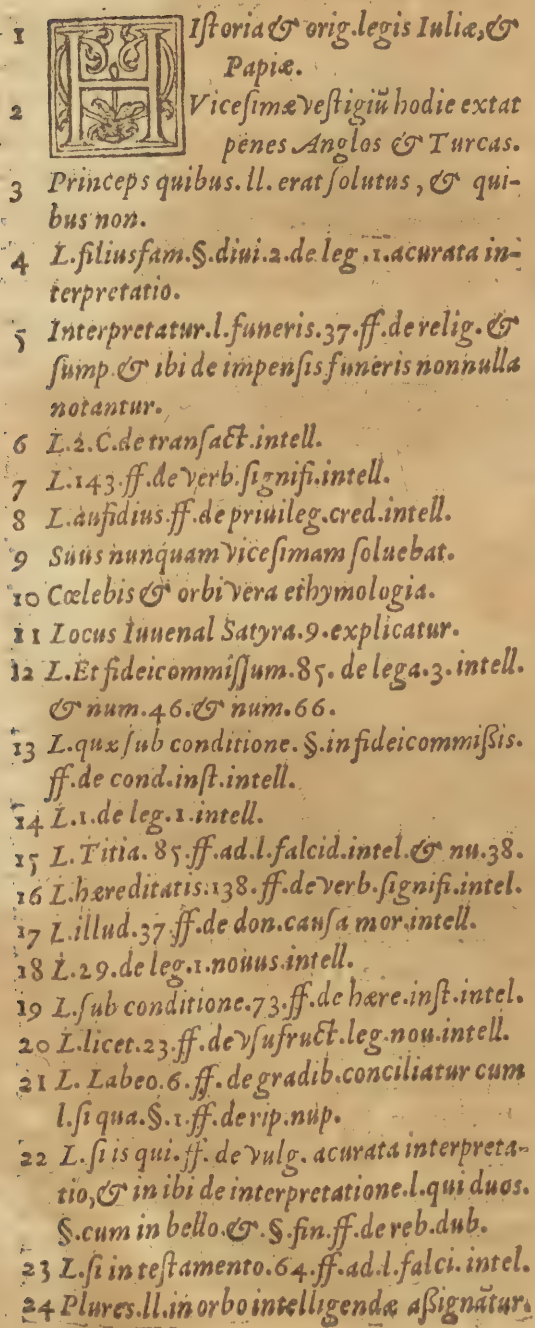 1 HIſtoria & orig.legis Iuliæ,&
Papiæ.
2 Viceſimæ veſtigiũ hodie extat
penes Anglos & Turcas.
3 Princeps quibus. ll. erat ſolutus, & qui-
bus non.
4 L.filiusfam.§.diui.2.de leg.1.acurata in-
terpretatio.
5 Interpretatur.l.funeris.37.ff.de relig.&
ſump.& ibi de impenſis funeris nonnulla
notantur.
6 L.2.C.de tranſact.intell.
7 L.143.ff.de verb.ſignifi.intell.
8 L.aufidius.ff.de priuileg.cred.intell.
9 Suus nunquam viceſimam ſoluebat.
10 Cœlebis & orbi vera ethymologia.
11 Locus Iuuenal Satyra.9.explicatur.
12 L.Et fideicommiſſum.85.de lega.3.intell.
& num.46.& num.66.
13 L.quæ ſub conditione.§.in fideicommißis.
ff.de cond.inſt.intell.
14 L.1.de leg.1.intell.
15 L.Titia.85.ff.ad.l.falcid.intel.& nu.38.
16 L.hæreditatis.138.ff.de verb.ſignifi.intel.
17 L.illud.37.ff.de don.cauſa mor.intell.
18 L.29.de leg.1.nouus.intell.
19 L.ſub conditione.73.ff.de hære.inſt.intel.
20 L.licet.23.ff.de vſufruct.leg.nou.intell.
21 L. Labeo.6.ff.de gradib.conciliatur cum
l.ſi qua.§.1.ff.de rip.nup.
22 L.ſi is qui.ff.de vulg. acurata interpreta-
tio,& in ibi de interpretatione.l.qui duos.
§.cum in bello.&.§.fin.ff.de reb.dub.
23 L.ſi in teſtamento.64.ff.ad.l.falci.intel.
24 Plures.ll.in orbo intelligendæ aßignãtur.